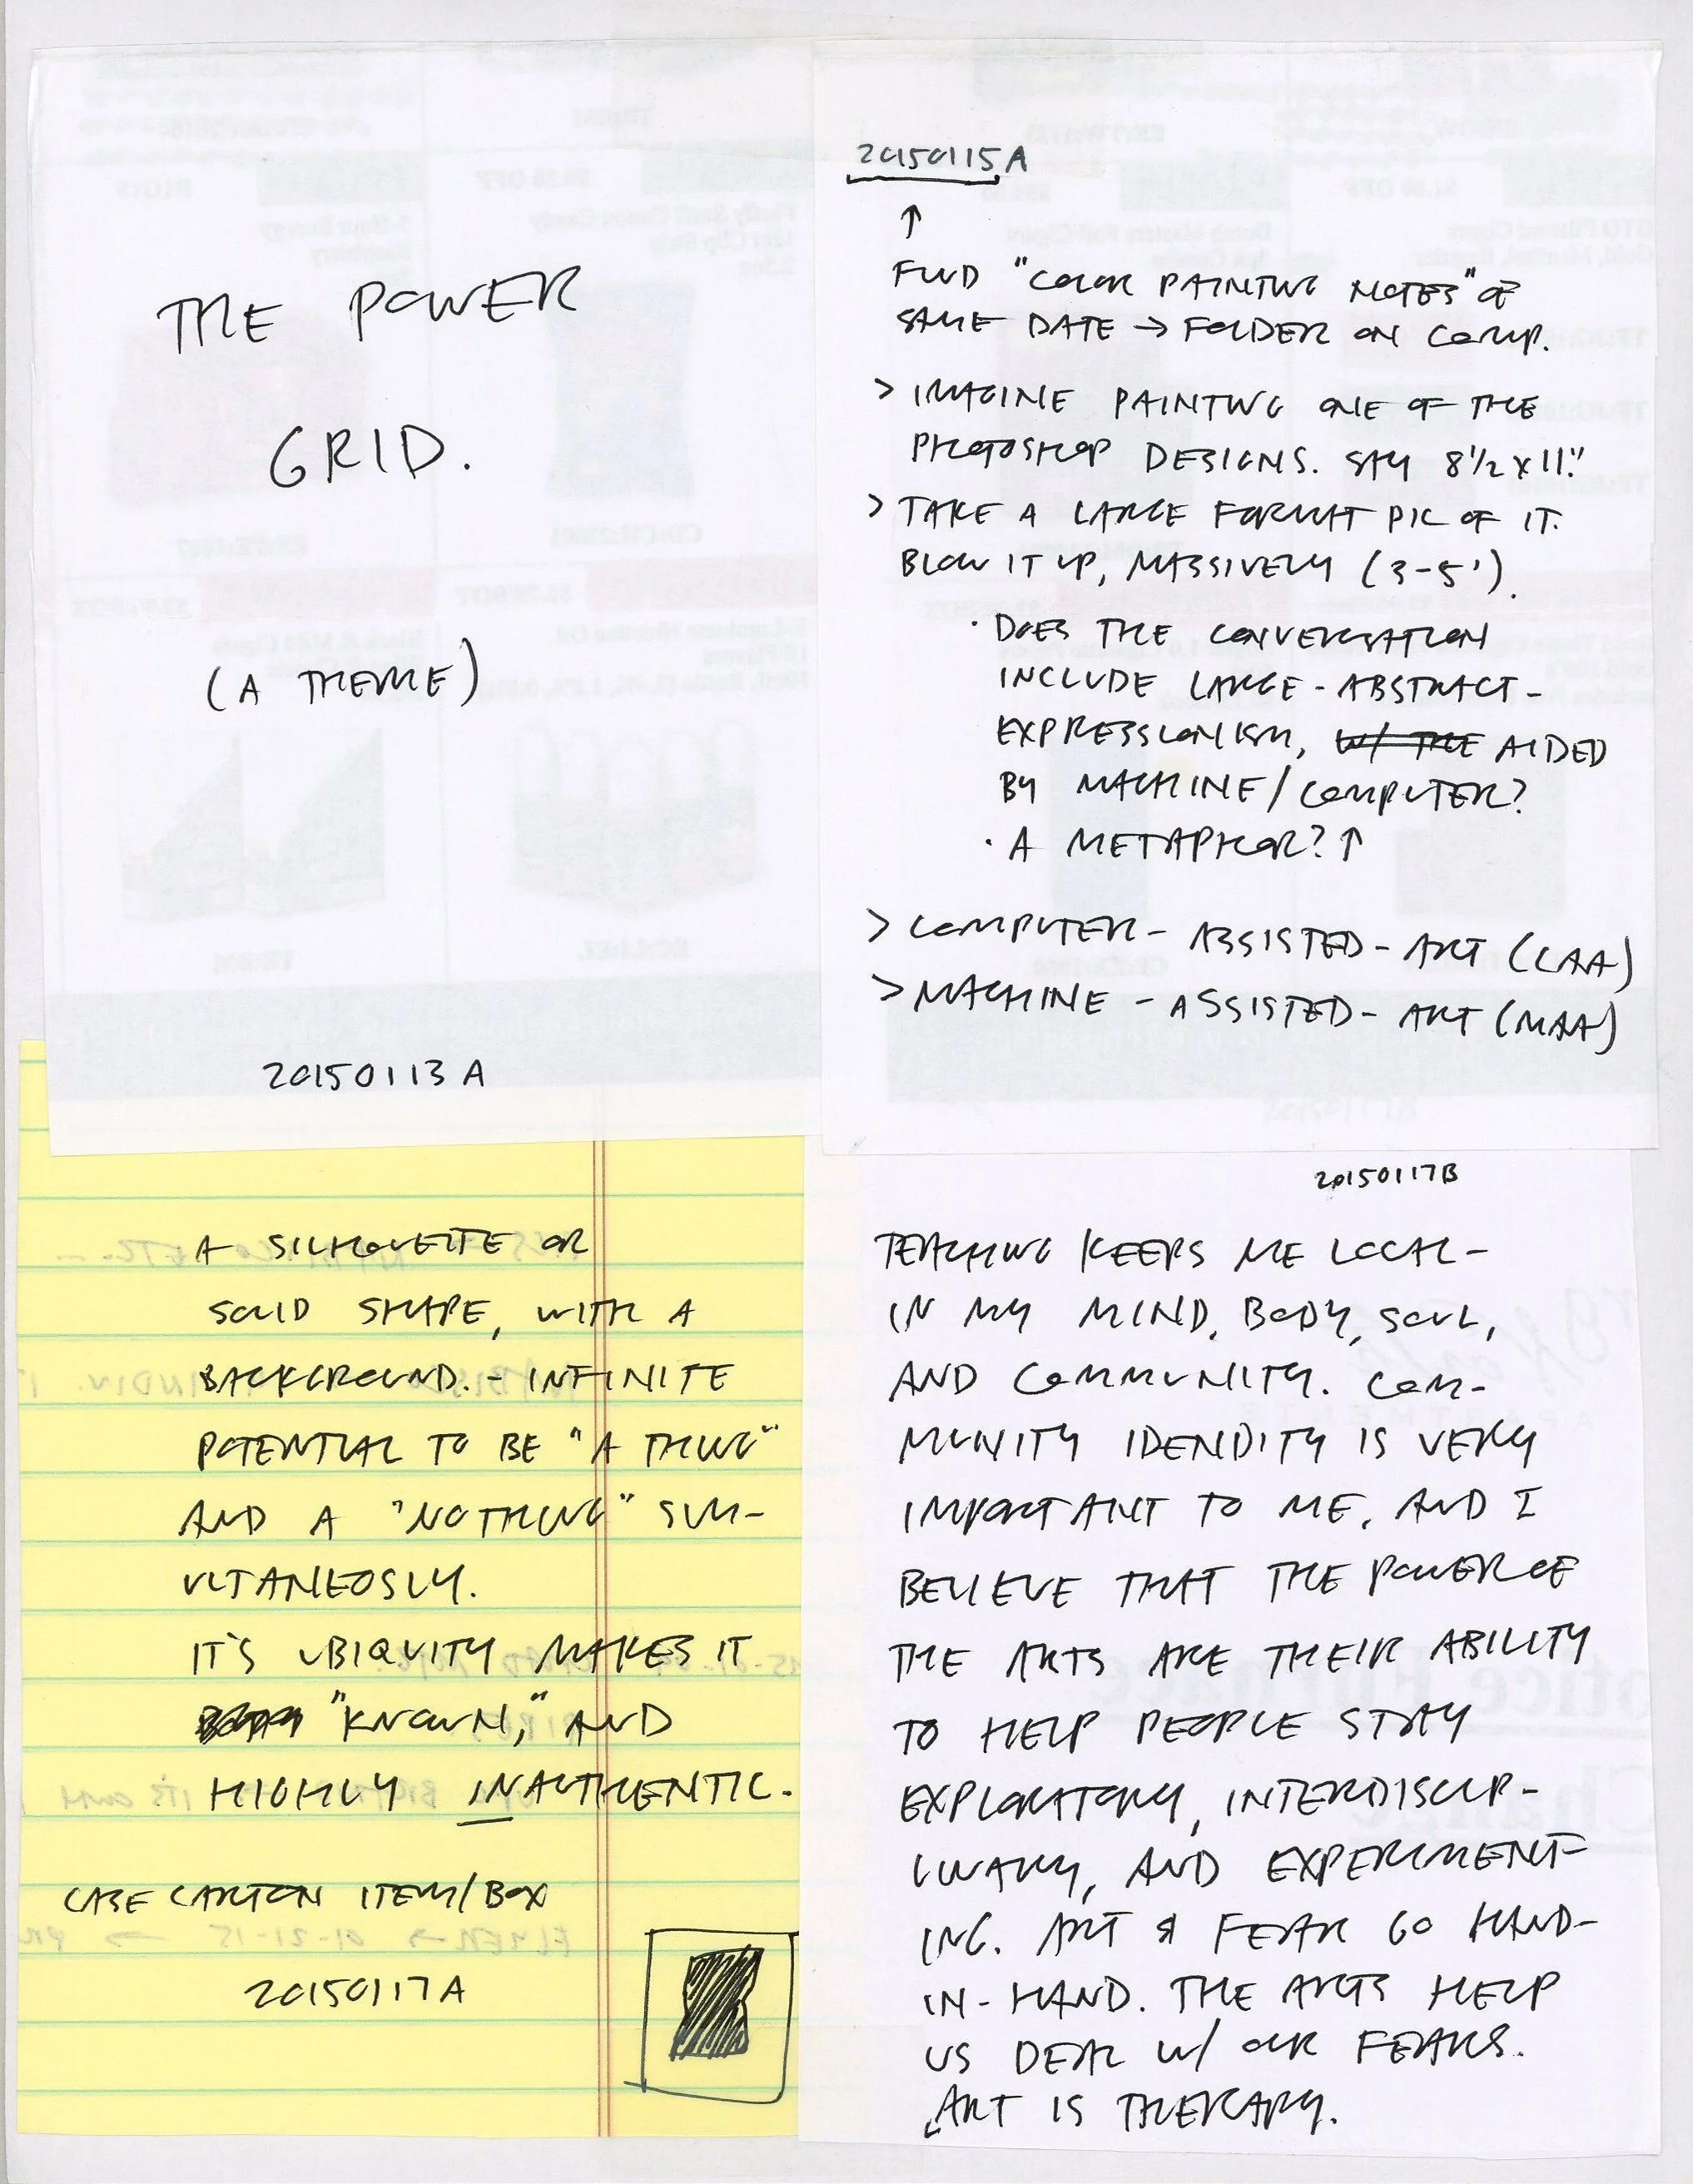 THE POWER
GRID.
(A THEME)
20150113A
20150115A
↑
FIND "COLOR PAINTING NOTES" OF
SAME DATE → FOLDER ON COMP.
> IMAGINE PAINTING ONE OF THE
PHOTOSHOP DESIGNS. SAY 8 1/2 x 11."
> TAKE A LARGE FORMAT PIC OF IT.
BLOW IT UP, MASSIVELY (3-5').
· DOES THE CONVERSATION
INCLUDE LARGE-ABSTRACT-
EXPRESSIONISM, W/ THE AIDED
BY MACHINE/COMPUTER?
· A METAPHOR? ↑
> COMPUTER-ASSISTED-ART (CAA)
> MACHINE-ASSISTED-ART (MAA)
A SILHOUETTE OR
SOLID SHAPE, WITH A
BACKGROUND. - INFINITE
POTENTIAL TO BE "A THING"
AND A "NOTHING" SIM-
ULTANEOSLY.
IT'S UBIQUITY MAKES IT
"KNOWN," AND
HIGHLY INAUTHENTIC.
CASE CARTON ITEM/BOX
20150117A
20150117B
TEACHING KEEPS ME LOCAL -
IN MY MIND, BODY, SOUL,
AND COMMUNITY. COM-
MUNITY IDENDITY IS VERY
IMPORTANT TO ME, AND I
BELIEVE THAT THE POWER OF
THE ARTS ARE THEIR ABILITY
TO HELP PEOPLE STAY
EXPLORATORY, INTERDISCIP-
LINARY, AND EXPERIMENT-
ING. ART & FEAR GO HAND-
IN-HAND. THE ARTS HELP
US DEAL W/ OUR FEARS.
ART IS THERAPY.